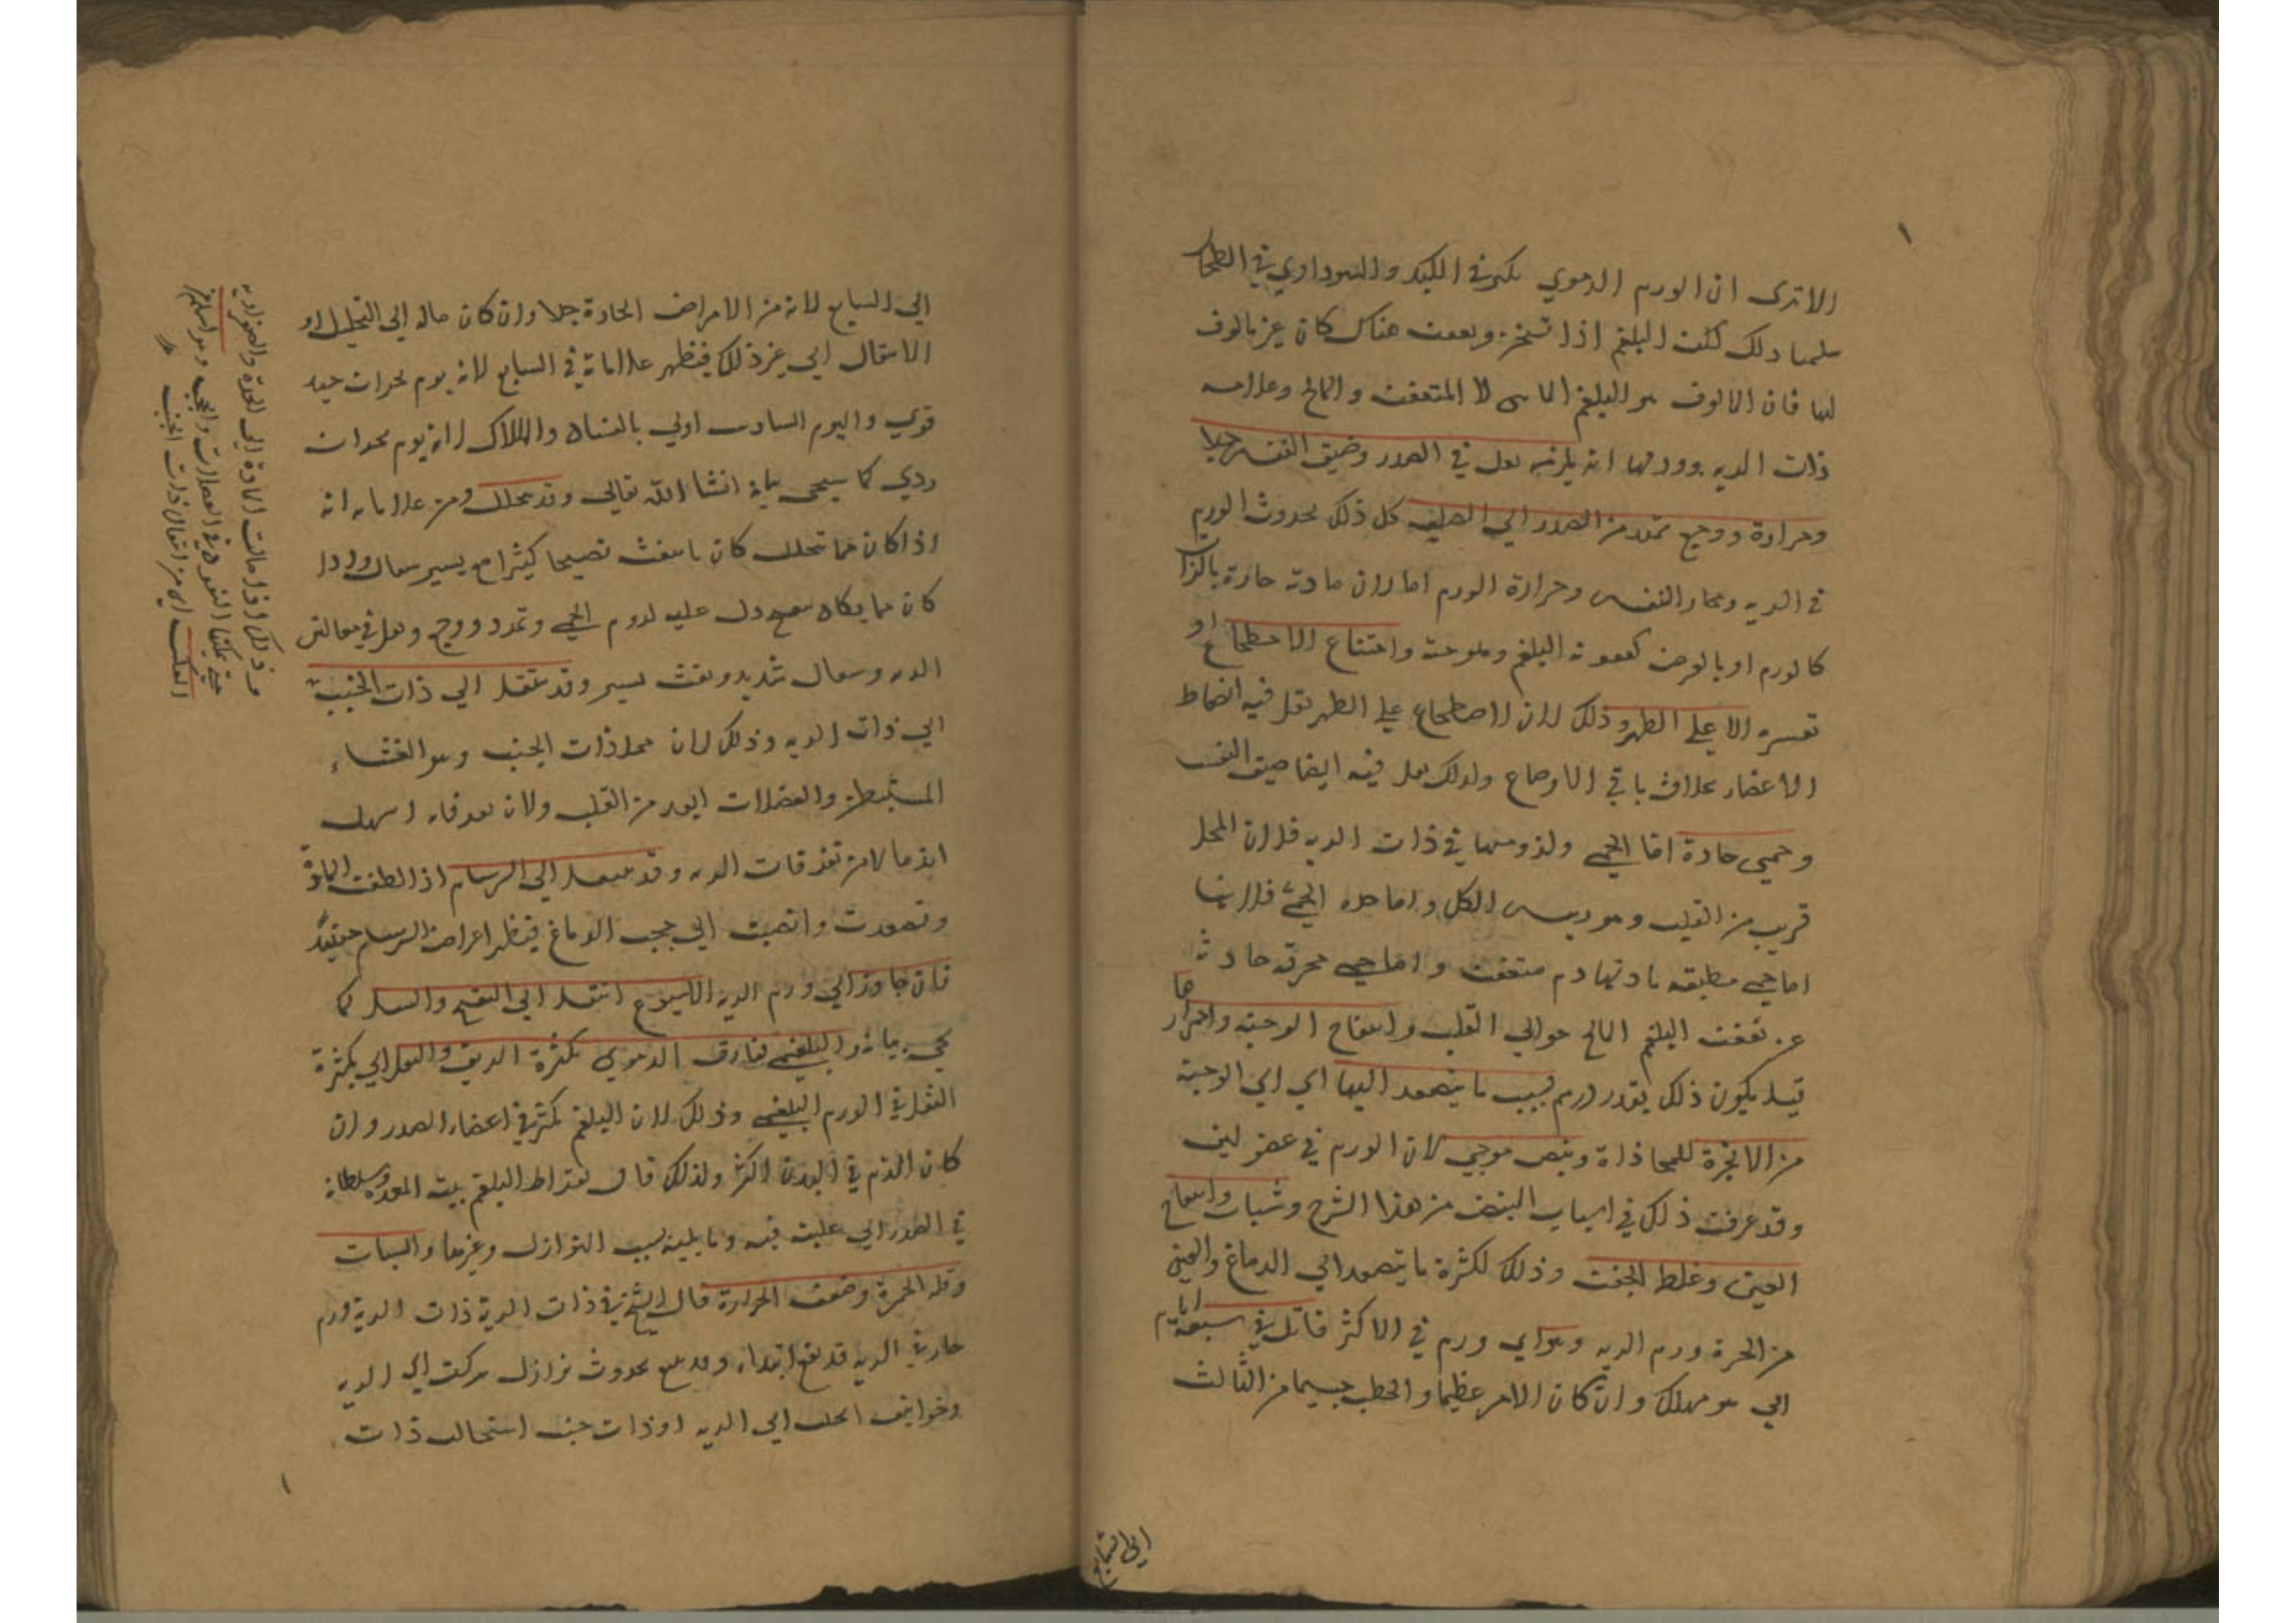 الا ترى ان الورم الدموي يكثر في الكبد والسوداوي في الطحال
سلمنا ذلك لكن البلغم اذا تسخن وتعفن هناك كان غير مالوف
لها فان المالوف هو البلغم لا المتعفن والمالح وعلامة
ذات الريه وورمها انه يلزمه ثقل في الصدر وضيق النفس جدا
وحرارة ووجع يمتد من الصدر الي الصلب كل ذلك لحدوث الورم
في الريه ومجار النفس وحرارة الورم اما لان مادته حارة بالذات
كالورم او بالعرض كعفونة البلغم وملوحته وامتناع الاضطجاع او
تعسره الا علي الظهر وذلك لان الاضطجاع علي الظهر تقل فيه انضغاط
الاعضاء بخلاف باقي الاوضاع ولذلك يقل فيه ايضا ضيق النفس
وحمي حادة اما الحمي ولزومها في ذات الريه فلان المحل
قريب من القلب وهو رييس الكل واما حدة الحمي فلانها
اما حمي مطبقه مادتها دم متعفن واما حمي محرقه حادثة
عن تعفن البلغم المالح حوالي القلب وانتفاخ الوجنه واحمرارها
قيل يكون ذلك بقدر ورم بسبب ما يتصعد اليها اي الي الوجنة
من الابخرة للمحاذاة ونبض موجي لان الورم في عضو لين
وقد عرفت ذلك في اسباب النبض من هذا الشرح وسبات وانتفاخ
العين وغلظ الجفن وذلك لكثرة ما يتصعد الي الدماغ والعين
من الحرة ورم الريه وهو اي ورم في الاكثر قاتل في سبعة ايام
اي هو مهلك وان كان الامر عظيما والخطب جسيما من الثالث
الي السابع
الي السابع لانه من الامراض الحادة جدا وان كان حاله الي التحليل او
الانتقال الي غير ذلك فيظهر علاماته في السابع لانه يوم بحران جيد
قوي واليوم السادس اولي بالفساد والهلاك لانه يوم بحران
ردي كما سيجي بيانه انشا الله تعالي وقد يتحلل ومن علاماته انه
اذا كان مما يتحلل كان ما ينفث نضيجا كثيرا مع يسير سعال واذا
كان مما يكاد دل عليه لزوم الحمي وتمدد ووجع وثقل في
الريه وسعال شديد ونفث يسير وقد ينتقل الي ذات الجنب
اي ذات الريه وذلك لان محل ذات الجنب وهو الغشاء
المستبطن والعضلات ابعد من القلب ولان اسهل
ايذما لا من تفرقات الريه وقد ينتقل الي السرسام اذا لطفت المادة
وتصعدت وانصبت الي حجب الدماغ فيظهر اعراض السرسام حينئذ
فان جاوز اي ورم الريه الاسبوع انتقل الي التقيح والسل كما
يجي بيانه والبلغمي يفارق الدموي بكثرة الريق والثقل اي بكثرة
الثقل في الورم البلغمي وذلك لان البلغم يكثر في اعضاء الصدر وان
كان الدم في البدن اكثر ولذلك قال بقراط البلغم بيته المعده وسلطانه
في الصدر اي غلبته فيه وما يليه بسبب النوازل وغيرها والسبات
وقله الحمرة وضعف الحرارة قال الشيخ في ذات الرية ذات الرية ورم
حار في الريه قد يقع ابتداء وقد يتبع حدوث نوازل نزلت الي الريه
وخوانيق انحلت الي الريه او ذات جنب استحالت ذات
وذلك اذا مالت المادة الي الحدة والصفراويه
حتي يمكنها النفوذ في العضلات والحجب وهو اسلم من
العكس اي من انتقال ذات الجنب